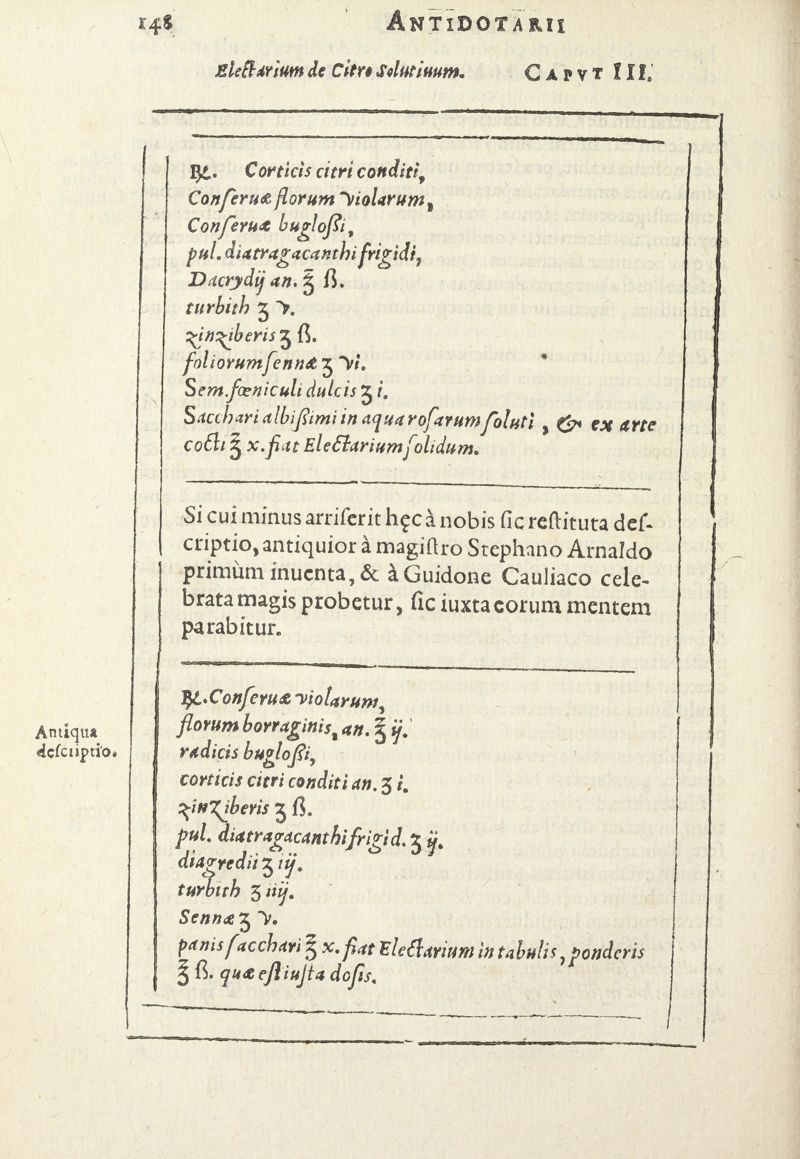 148 ANTIDOTARII
Electarium de Citro Solutiuum. CAPVT III.
℞. Corticis citri conditi,
Conseruæ florum violarum,
Conseruæ buglossi,
pul. diatragacanthi frigidi,
Dacrydij an. ℥ ß.
turbith ʒ v.
zinziberis ʒ ß.
foliorum sennæ ʒ vi.
Sem. fœniculi dulcis ʒ i.
Sacchari albissimi in aqua rosarum soluti, & ex arte
cocti ℥ x. fiat Electarium solidum.
Si cui minus arriserit hęc à nobis sic restituta des-
criptio, antiquior à magistro Stephano Arnaldo
primùm inuenta, & à Guidone Cauliaco cele-
brata magis probetur, sic iuxta eorum mentem
parabitur.
Antiqua
descriptio.
℞. Conseruæ violarum,
florum borraginis, an. ℥ ij.
radicis buglossi,
corticis citri conditi an. ʒ i.
zinziberis ʒ ß.
pul. diatragacanthi frigid. ʒ ij.
diagredii ʒ iij.
turbith ʒ iiij.
Sennæ ʒ v.
panis sacchari ℥ x. fiat Electarium in tabulis, ponderis
℥ ß. quæ est iusta dosis.